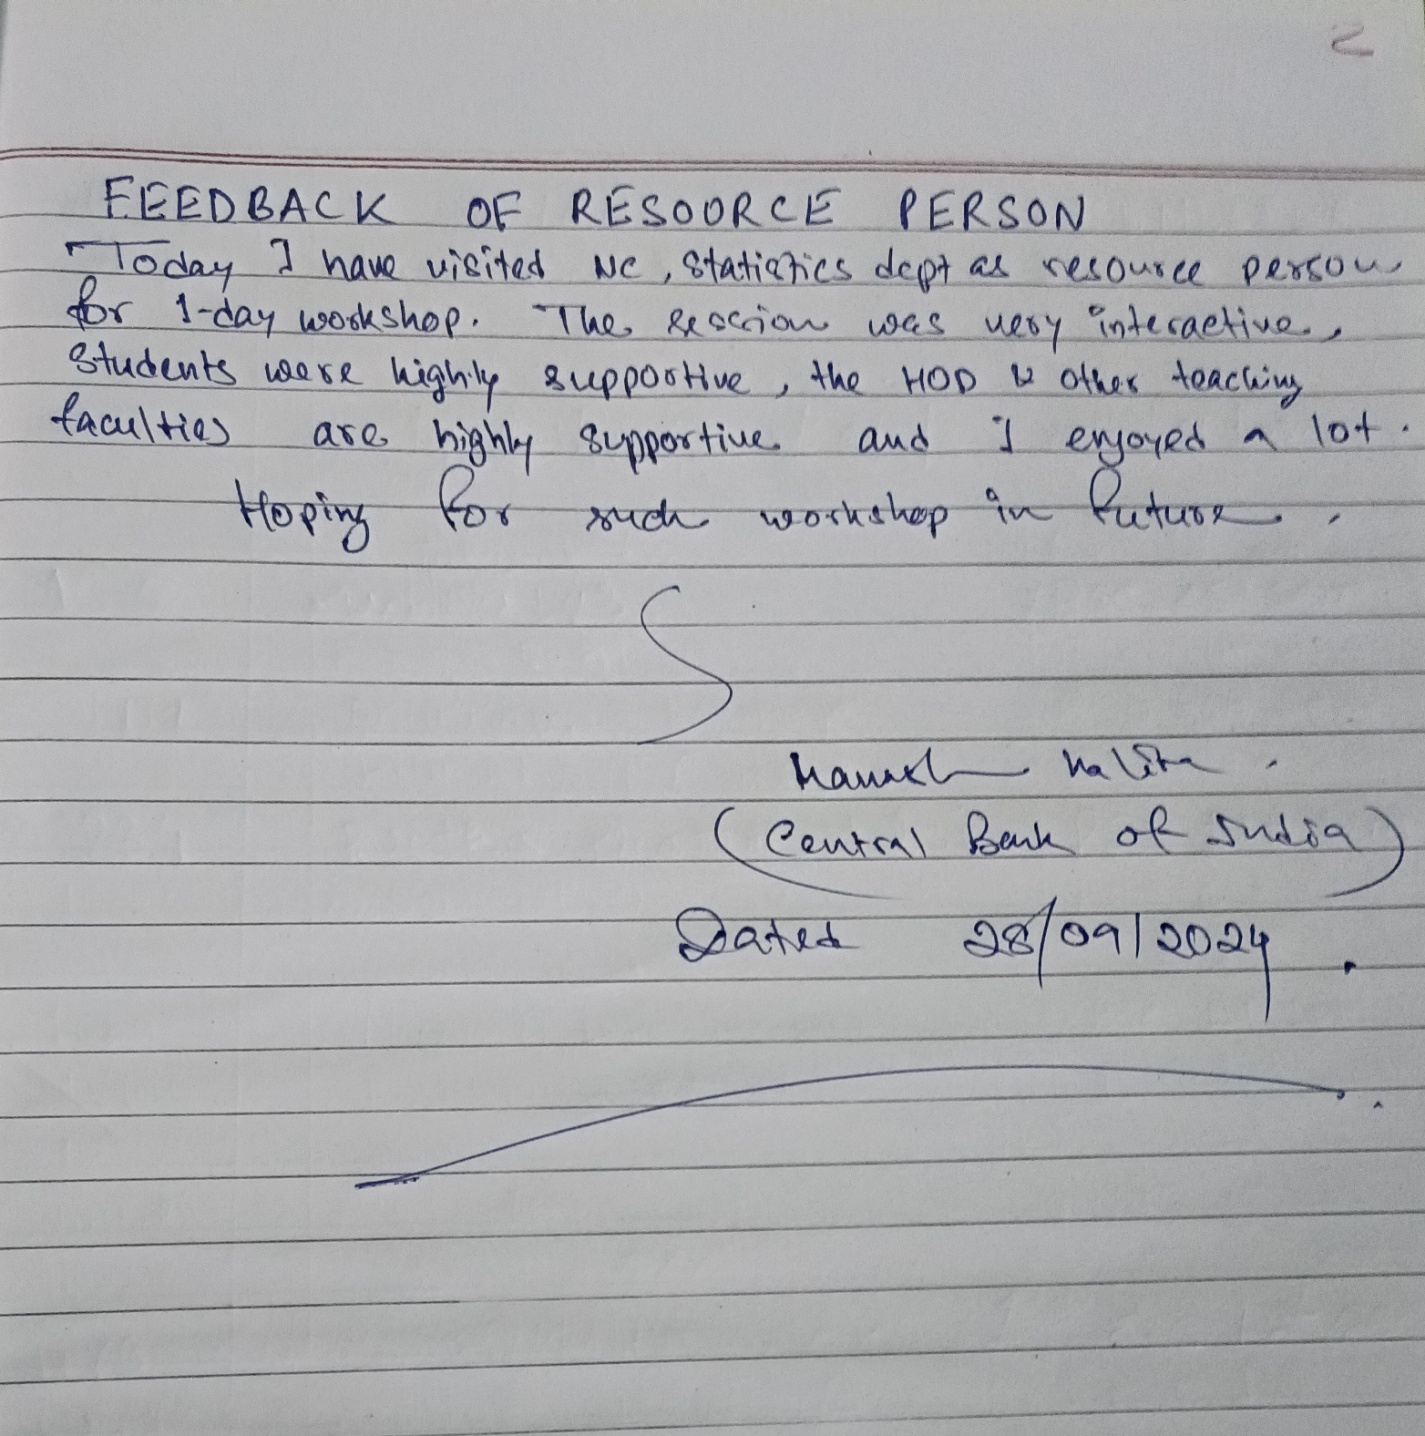 2
FEEDBACK OF RESOURCE PERSON
Today I have visited NC, Statistics dept as resource person
for 1-day workshop. The session was very interactive,
Students were highly supportive, the HOD & other teaching
faculties are highly supportive and I enjoyed a lot.
Hoping for such workshop in future.
Manash Kalita.
(Central Bank of India)
Dated 28/09/2024.